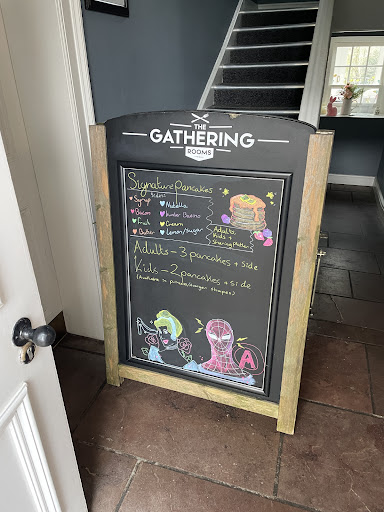 THE
GATHERING
ROOMS
Signature Pancakes
Sides:
Syrup
Nutella
Bacon
Kinder Bueno
Fruit
Cream
Butter
Lemon/Sugar
Adults,
Kids +
Sharing platter
Adults - 3 pancakes + side
Kids - 2 pancakes + side
A